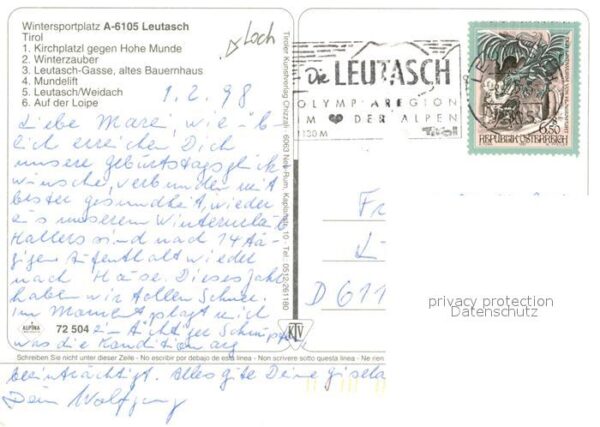 Wintersportplatz A-6105 Leutasch
Tirol
1. Kirchplatzl gegen Hohe Munde
2. Winterzauber
3. Leutasch-Gasse, altes Bauernhaus
4. Mundelift
5. Leutasch/Weidach
6. Auf der Loipe
Loch
1.2.98
Liebe Marei, wie üb-
lich erreichen Dich
unsere Geburtstagsglück
wünsche, verbunden mit
bester gesundheit, wieder
aus unserem Winterurlaub
sind nach 14 tä-
gigen Aufenthalt wieder
nach Hause. Dieses Jahr
haben wir tollen Schnee.
Im Moment plagt mich
ein tüchtiger Schnupfen
was die Kondition arg
beeinträchtigt. Alles gute Deine gisela
Dein Wolfgang
Tiroler Kunstverlag Chizzali · 6063 Neu-Rum, Kaplanstr. 10 · Tel. 0512/261180
ALPINA
72 504
KTV
Schreiben Sie nicht unter dieser Zeile - No escribir por debajo de esta linea - Non scrivere sotto questa linea - Ne rien
Die LEUTASCH
OLYMPIAREGION
IM ❤ DER ALPEN
1130 M
Tirol
6.50
REPUBLIK ÖSTERREICH
D 611
privacy protection
Datenschutz